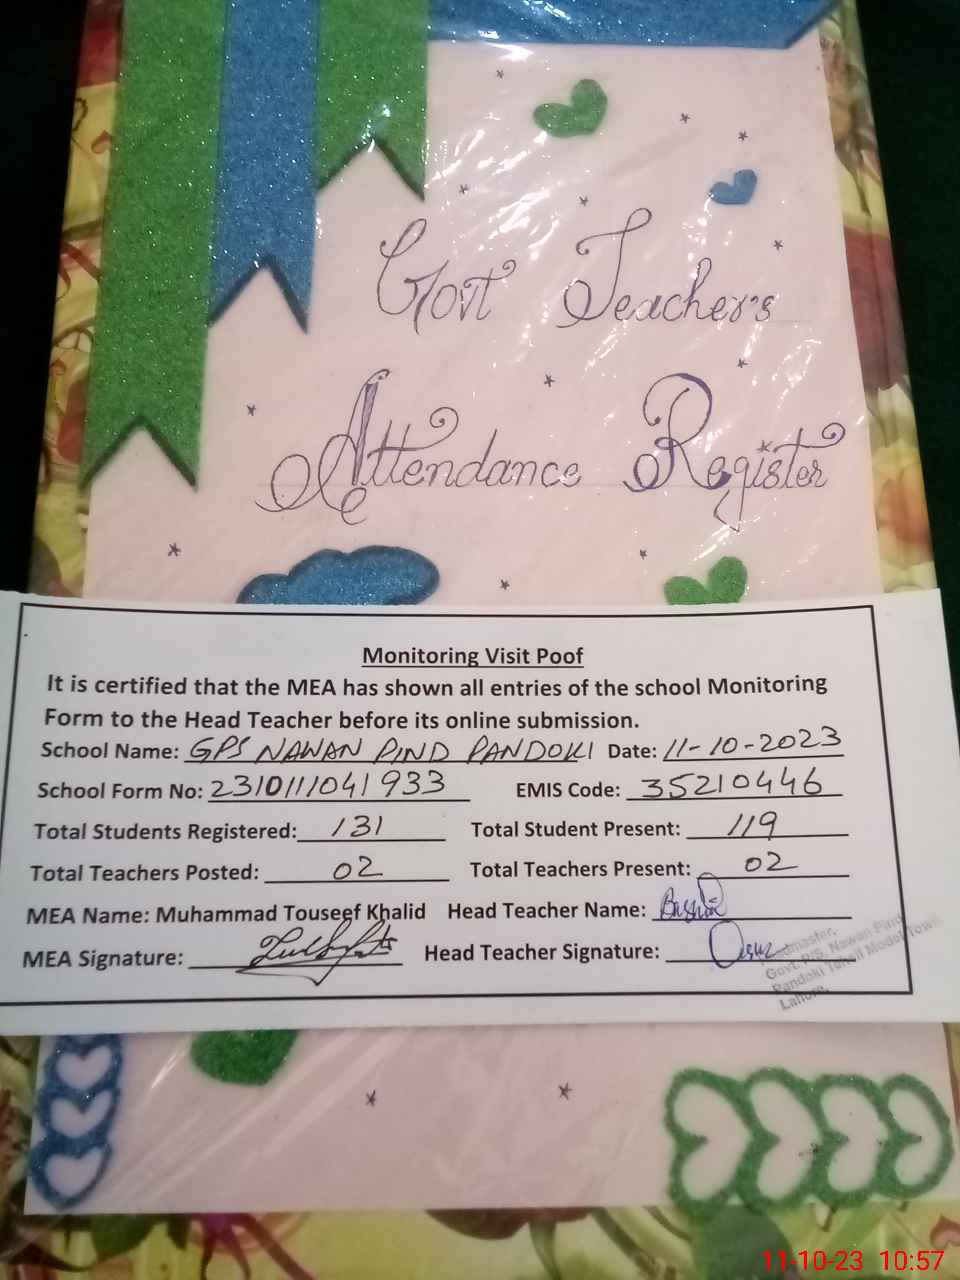 Govt Teacher's
Attendance Register
Monitoring Visit Poof
It is certified that the MEA has shown all entries of the school Monitoring
Form to the Head Teacher before its online submission.
School Name: GPS NAWAN PIND PANDOKI Date: 11-10-2023
School Form No: 2310111041933 EMIS Code: 35210446
Total Students Registered: 131 Total Student Present: 119
Total Teachers Posted: 02 Total Teachers Present: 02
MEA Name: Muhammad Touseef Khalid Head Teacher Name:
MEA Signature: Head Teacher Signature:
Headmaster,
Govt. P/S, Nawan Pind
Pandoki Tehsil Model Town
Lahore.
11-10-23 10:57